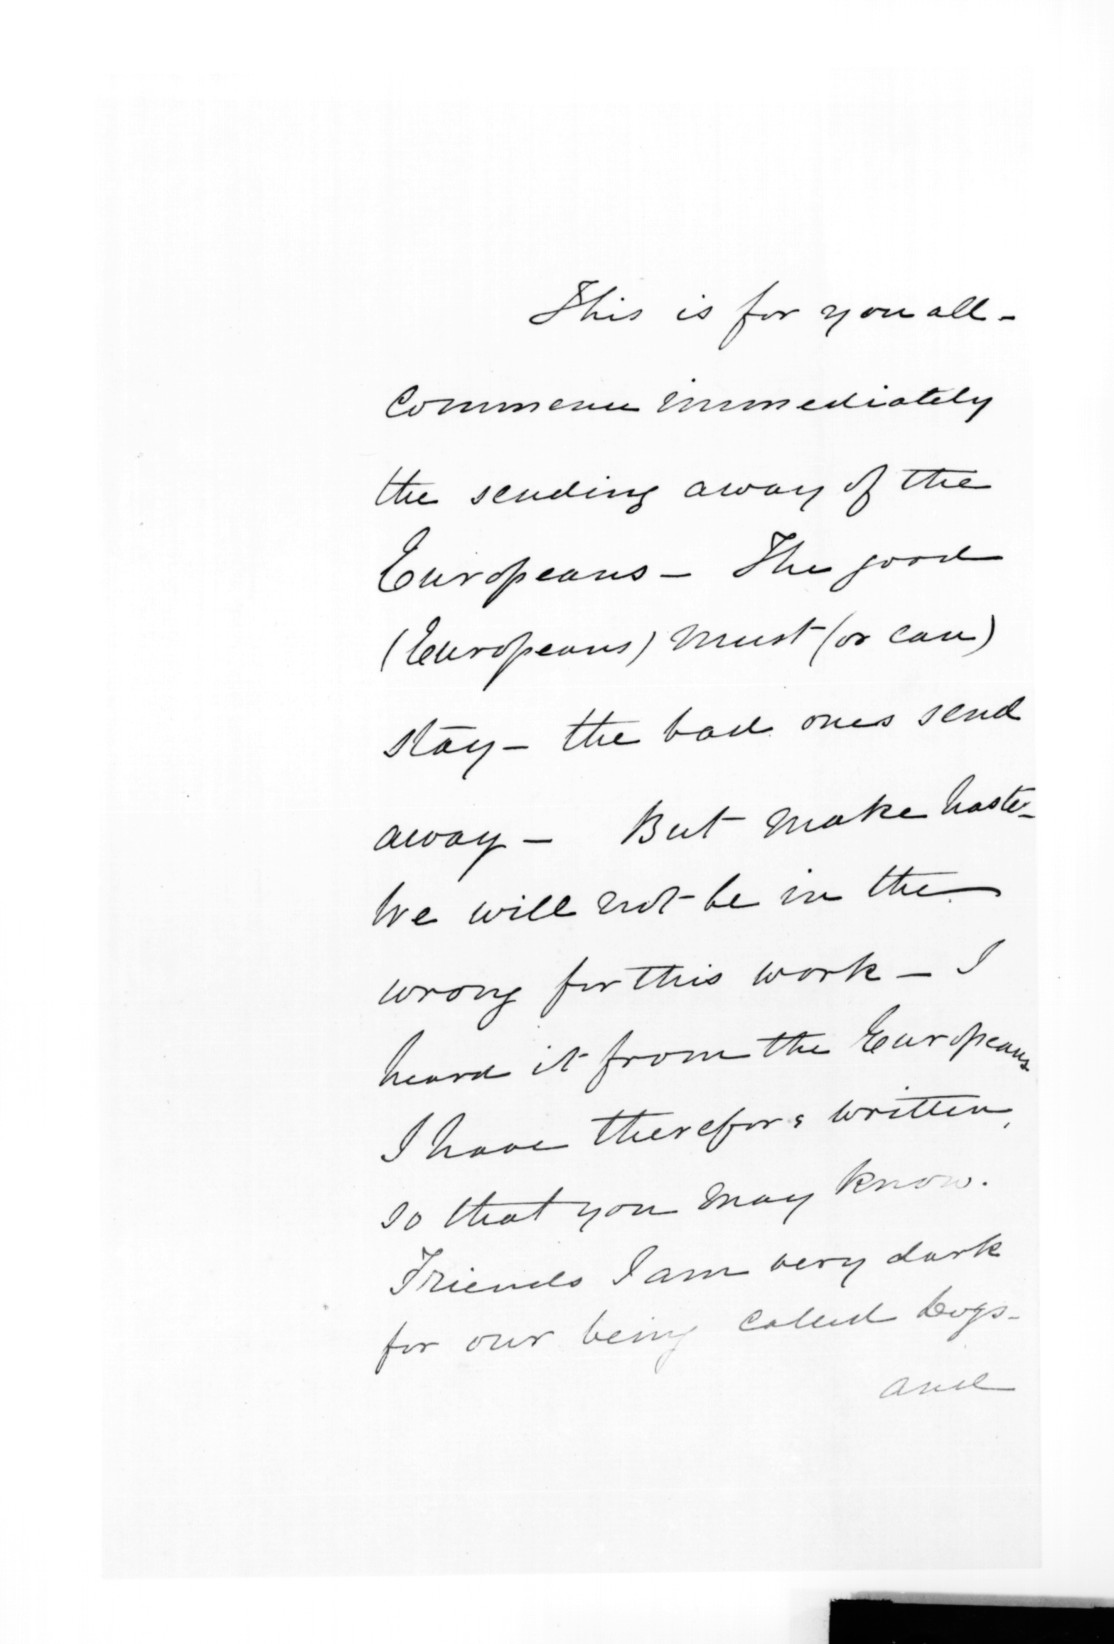 This is for you all -
commence immediately
the sending away of the
Europeans - The good
(Europeans) must (or can)
stay - the bad ones send
away - But make haste -
We will not be in the
wrong for this work - I
heard it from the Europeans
I have therefore written,
so that you may know.
Friends I am very dark
for our being called Dogs -
and